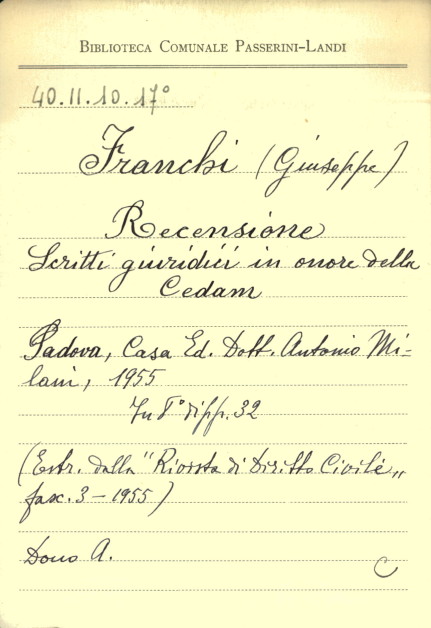 BIBLIOTECA COMUNALE PASSERINI-LANDI
40.II.10.17°
Franchi (Giuseppe)
Recensione
Scritti giuridici in onore della
Cedam
Padova, Casa Ed. Dott. Antonio Mi-
lani, 1955
In 8° di pp. 32
(Estr. dalla "Rivista di Diritto Civile„
fasc. 3 - 1955)
Dono A.
C